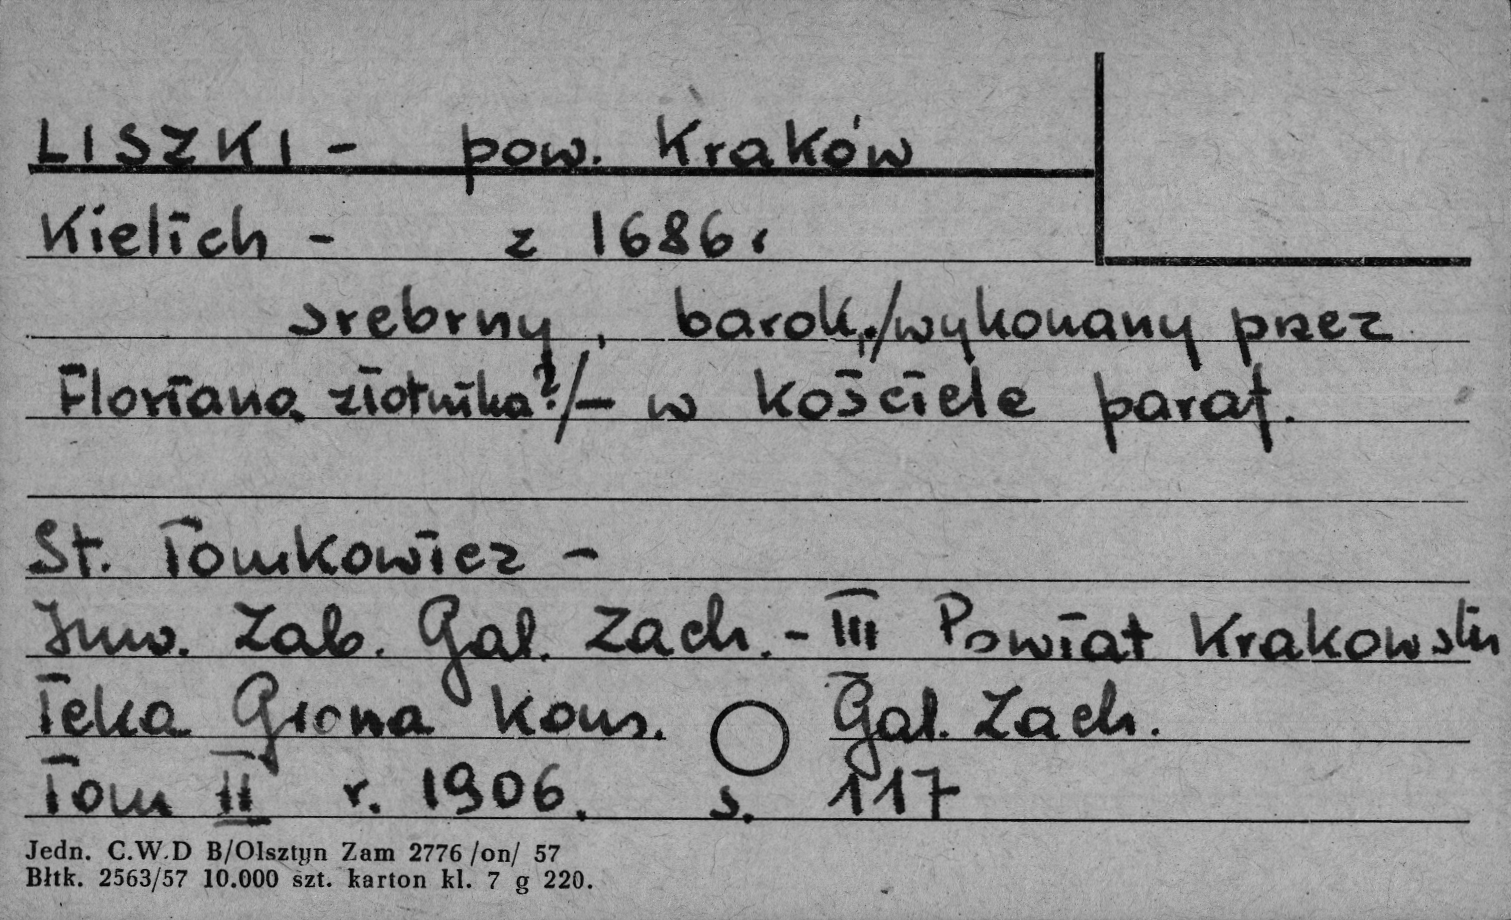 LISZKI - pow. Kraków
Kielich - z 1686 r
srebrny, barok, /wykonany przez
Floriana złotnika?/ - w kościele paraf.
St. Tomkowicz -
Inw. Zab. Gal. Zach. - III Powiat Krakowski
Teka Grona Kons. Gal. Zach.
Tom II r. 1906. s. 117
Jedn. C.W.D B/Olsztyn Zam 2776 /on/ 57
Błtk. 2563/57 10.000 szt. karton kl. 7 g 220.